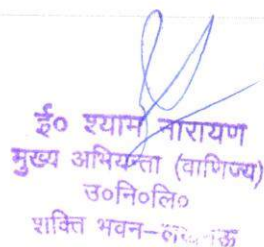 ई० श्याम नारायण
मुख्य अभियन्ता (वाणिज्य)
उ०नि०लि०
शक्ति भवन-लखनऊ